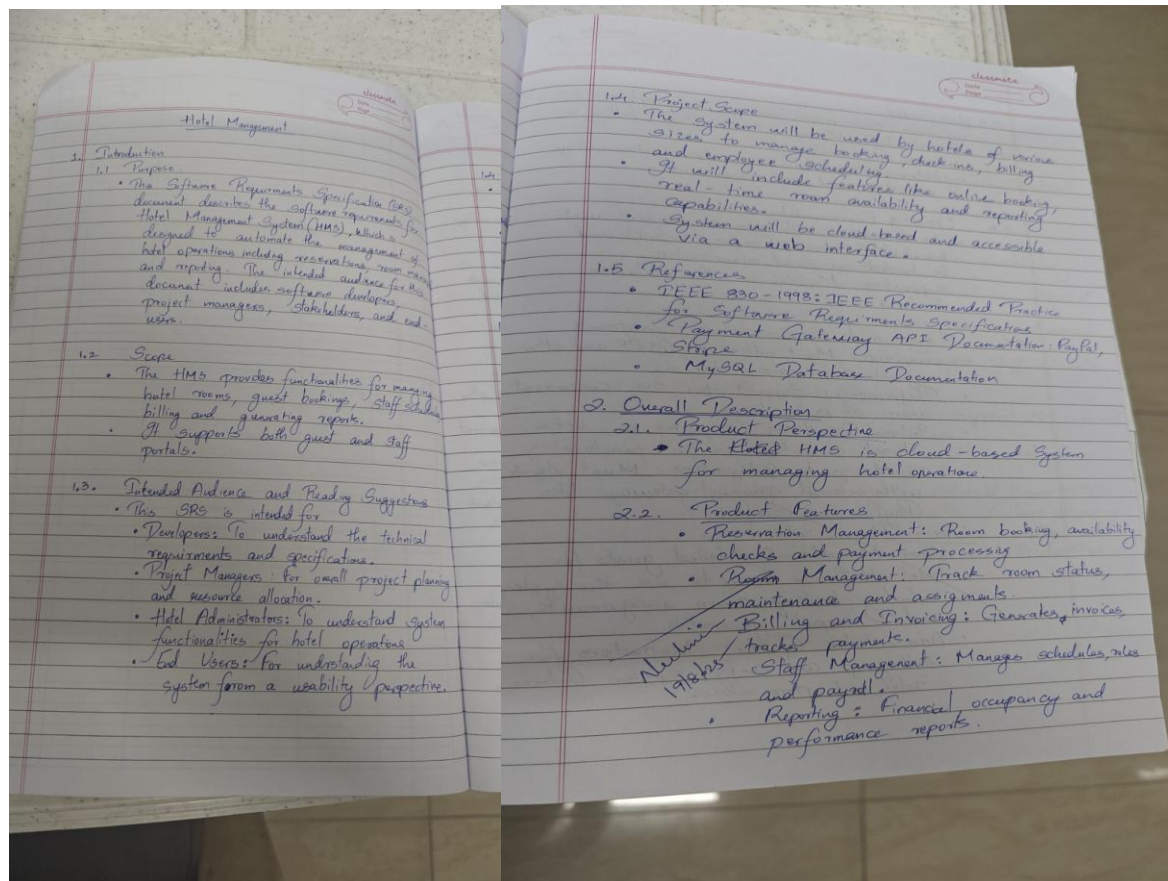 classmate
Date
Page
Hotel Management
1. Introduction
1.1 Purpose
• The Software Requirments Specification (SRS)
document describes the software requirements for
Hotel Management System (HMS), which is
designed to automate the management of
hotel operations including reservations, room
and reporting. The intended audience for this
document includes software developers,
project managers, stakeholders, and end-
users.
1.2 Scope
• The HMS provides functionalities for managing
hotel rooms, guest bookings, staff schedules,
billing and generating reports.
• It supports both guest and staff
portals.
1.3. Intended Audience and Reading Suggestions
• This SRS is intended for
• Developers: To understand the technical
requirments and specifications.
• Project Managers: For overall project planning
and resource allocation.
• Hotel Administrators: To understand system
functionalities for hotel operations
• End Users: For understanding the
system from a usability perspective.
classmate
Date
Page
1.4. Project Scope
• The system will be used by hotels of various
sizes to manage booking, check ins, billing
and employee scheduling.
• It will include features like online booking,
real-time room availability and reporting
capabilities.
• System will be cloud-based and accessible
via a web interface.
1.5 References
• IEEE 830-1998: IEEE Recommended Practice
for Software Requirments Specifications
• Payment Gateway API Documentation: PayPal,
Stripe
• MySQL Database Documentation
2. Overall Description
2.1. Product Perspective
• The HMS is cloud-based System
for managing hotel operations.
2.2. Product Features
• Reservation Management: Room booking, availability
checks and payment processing
• Room Management: Track room status,
maintenance and assigments.
• Billing and Invoicing: Generates, invoices,
tracks payments.
Staff Management: Manages schedules, roles
and payroll.
• Reporting: Financial, occupancy and
performance reports.
19/8/25